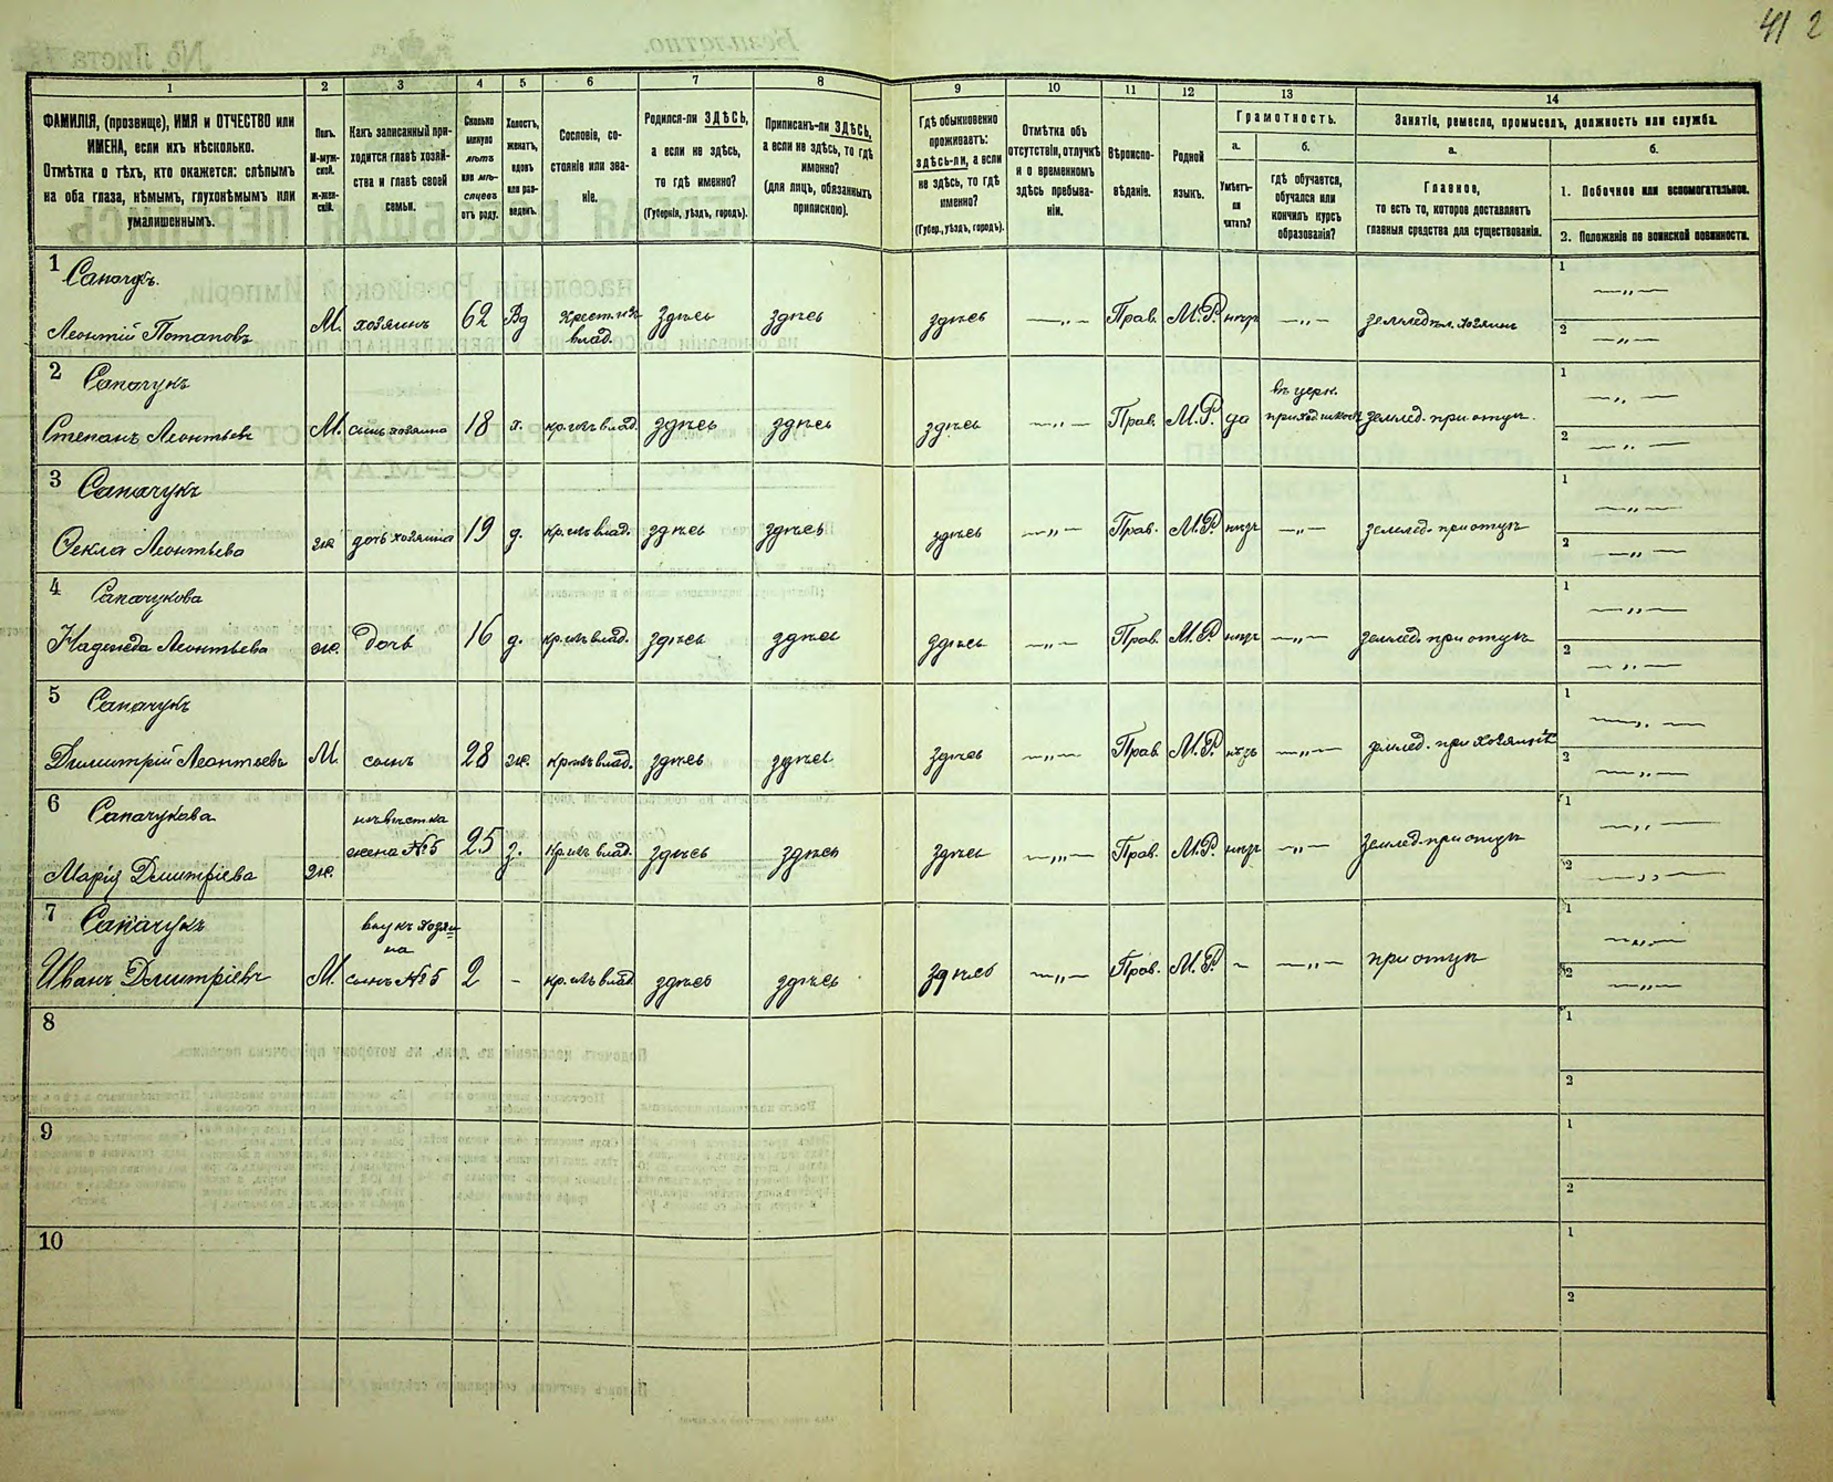 41 2
1 2 3 4 5 6 7 8 9 10 11 12 13 14
ФАМИЛІЯ, (прозвище), ИМЯ и ОТЧЕСТВО или
ИМЕНА, если ихъ нѣсколько.
Отмѣтка о тѣхъ, кто окажется: слѣпымъ
на оба глаза, нѣмымъ, глухонѣмымъ или
умалишеннымъ.
Полъ.
М-муж-
ской.
ж-жен-
скій.
Какъ записанный при-
ходится главѣ хозяй-
ства и главѣ своей
семьи.
Сколько
минуло
лѣтъ
или мѣ-
сяцевъ
отъ роду.
Холостъ,
женатъ,
вдовъ
или раз-
веденъ.
Сословіе, со-
стояніе или зва-
ніе.
Родился-ли ЗДѢСЬ,
а если не здѣсь,
то гдѣ именно?
(Губернія, уѣздъ, городъ).
Приписанъ-ли ЗДѢСЬ,
а если не здѣсь, то гдѣ
именно?
(для лицъ, обязанныхъ
припискою).
Гдѣ обыкновенно
проживаетъ:
здѣсь-ли, а если
не здѣсь, то гдѣ
именно?
(Губер., уѣздъ, городъ).
Отмѣтка объ
отсутствіи, отлучкѣ
и о временномъ
здѣсь пребыва-
ніи.
Вѣроиспо-
вѣданіе.
Родной
языкъ.
Грамотность.
а.
Умѣетъ-
ли
читать?
б.
гдѣ обучается,
обучался или
кончилъ курсъ
образованія?
Занятіе, ремесло, промыселъ, должность или служба.
а.
Главное,
то есть то, которое доставляетъ
главныя средства для существованія.
б.
1. Побочное или вспомогательное.
2. Положеніе по воинской повинности.
1 Сапачукъ.
Леонтій Потаповъ М. хозяинъ 62 Вд крест. изъ влад. здѣсь здѣсь здѣсь —„— Прав. М.Р. нѣтъ —„— земледѣл. хозяинъ
1 —„—
2 —„—
2 Сапачукъ
Степанъ Леонтьевъ М. сынъ хозяина 18 х. кр. изъ влад. здѣсь здѣсь здѣсь —„— Прав. М.Р. да въ церк. приход. школѣ землед. при отцѣ
1 —„—
2 —„—
3 Сапачукъ
Ѳекла Леонтьева ж. дочь хозяина 19 д. кр. изъ влад. здѣсь здѣсь здѣсь —„— Прав. М.Р. нѣтъ —„— землед. при отцѣ
1 —„—
2 —„—
4 Сапачукова
Надежда Леонтьева ж. дочь 16 д. кр. изъ влад. здѣсь здѣсь здѣсь —„— Прав. М.Р. нѣтъ —„— землед. при отцѣ
1 —„—
2 —„—
5 Сапачукъ
Димитрій Леонтьевъ М. сынъ 28 ж. кр. изъ влад. здѣсь здѣсь здѣсь —„— Прав. М.Р. нѣтъ —„— землед. при хозяинѣ
1 —„—
2 —„—
6 Сапачукова
Марія Димитріева ж. невѣстка жена №5 25 з. кр. изъ влад. здѣсь здѣсь здѣсь —„— Прав. М.Р. нѣтъ —„— землед. при отцѣ
1 —„—
2 —„—
7 Сапачукъ
Иванъ Димитріевъ М. внукъ хозяина сынъ №5 2 - кр. изъ влад. здѣсь здѣсь здѣсь —„— Прав. М.Р. - —„— при отцѣ
1 —„—
2 —„—
8
1
2
9
1
2
10
1
2